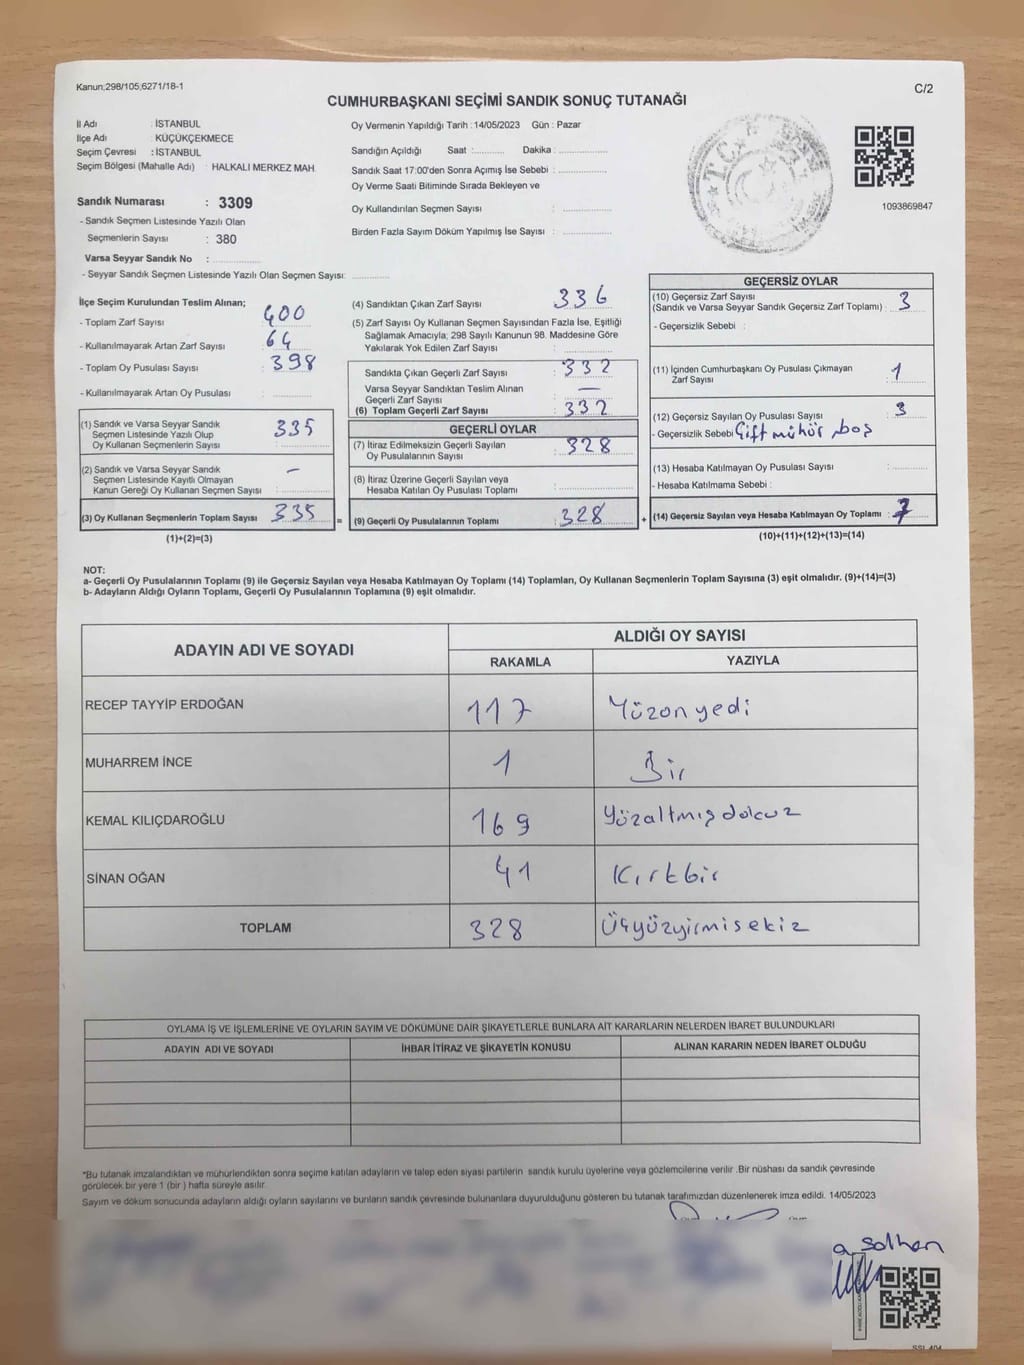 Kanun;298/105;6271/18-1
C/2
CUMHURBAŞKANI SEÇİMİ SANDIK SONUÇ TUTANAĞI
İl Adı : İSTANBUL
İlçe Adı : KÜÇÜKÇEKMECE
Seçim Çevresi : İSTANBUL
Seçim Bölgesi (Mahalle Adı) : HALKALI MERKEZ MAH.
Sandık Numarası : 3309
- Sandık Seçmen Listesinde Yazılı Olan
Seçmenlerin Sayısı : 380
Varsa Seyyar Sandık No :
- Seyyar Sandık Seçmen Listesinde Yazılı Olan Seçmen Sayısı:
Oy Vermenin Yapıldığı Tarih :14/05/2023 Gün : Pazar
Sandığın Açıldığı Saat : Dakika :
Sandık Saat 17:00'den Sonra Açımış İse Sebebi :
Oy Verme Saati Bitiminde Sırada Bekleyen ve
Oy Kullandırılan Seçmen Sayısı :
Birden Fazla Sayım Döküm Yapılmış İse Sayısı :
T.C.
1093869847
İlçe Seçim Kurulundan Teslim Alınan;
- Toplam Zarf Sayısı : 400
- Kullanılmayarak Artan Zarf Sayısı : 64
- Toplam Oy Pusulası Sayısı : 398
- Kullanılmayarak Artan Oy Pusulası :
(1) Sandık ve Varsa Seyyar Sandık
Seçmen Listesinde Yazılı Olup
Oy Kullanan Seçmenlerin Sayısı : 335
(2) Sandık ve Varsa Seyyar Sandık
Seçmen Listesinde Kayıtlı Olmayan
Kanun Gereği Oy Kullanan Seçmen Sayısı : –
(3) Oy Kullanan Seçmenlerin Toplam Sayısı : 335 =
(1)+(2)=(3)
(4) Sandıktan Çıkan Zarf Sayısı : 336
(5) Zarf Sayısı Oy Kullanan Seçmen Sayısından Fazla İse, Eşitliği
Sağlamak Amacıyla; 298 Sayılı Kanunun 98. Maddesine Göre
Yakılarak Yok Edilen Zarf Sayısı :
Sandıkta Çıkan Geçerli Zarf Sayısı : 332
Varsa Seyyar Sandıktan Teslim Alınan
Geçerli Zarf Sayısı : —
(6) Toplam Geçerli Zarf Sayısı : 332
GEÇERLİ OYLAR
(7) İtiraz Edilmeksizin Geçerli Sayılan
Oy Pusulalarının Sayısı : 328
(8) İtiraz Üzerine Geçerli Sayılan veya
Hesaba Katılan Oy Pusulası Toplamı :
(9) Geçerli Oy Pusulalarının Toplamı : 328 +
GEÇERSİZ OYLAR
(10) Geçersiz Zarf Sayısı
(Sandık ve Varsa Seyyar Sandık Geçersiz Zarf Toplamı) : 3
- Geçersizlik Sebebi :
(11) İçinden Cumhurbaşkanı Oy Pusulası Çıkmayan
Zarf Sayısı : 1
(12) Geçersiz Sayılan Oy Pusulası Sayısı : 3
- Geçersizlik Sebebi: Çift mühür, boş
(13) Hesaba Katılmayan Oy Pusulası Sayısı :
- Hesaba Katılmama Sebebi :
(14) Geçersiz Sayılan veya Hesaba Katılmayan Oy Toplamı : 7
(10)+(11)+(12)+(13)=(14)
NOT:
a- Geçerli Oy Pusulalarının Toplamı (9) ile Geçersiz Sayılan veya Hesaba Katılmayan Oy Toplamı (14) Toplamları, Oy Kullanan Seçmenlerin Toplam Sayısına (3) eşit olmalıdır. (9)+(14)=(3)
b- Adayların Aldığı Oyların Toplamı, Geçerli Oy Pusulalarının Toplamına (9) eşit olmalıdır.
ADAYIN ADI VE SOYADI ALDIĞI OY SAYISI
RAKAMLA YAZIYLA
RECEP TAYYİP ERDOĞAN 117 Yüzonyedi
MUHARREM İNCE 1 Bir
KEMAL KILIÇDAROĞLU 169 Yüzaltmışdokuz
SİNAN OĞAN 41 Kırkbir
TOPLAM 328 Üçyüzyirmisekiz
OYLAMA İŞ VE İŞLEMLERİNE VE OYLARIN SAYIM VE DÖKÜMÜNE DAİR ŞİKAYETLERLE BUNLARA AİT KARARLARIN NELERDEN İBARET BULUNDUKLARI
ADAYIN ADI VE SOYADI İHBAR İTİRAZ VE ŞİKAYETİN KONUSU ALINAN KARARIN NEDEN İBARET OLDUĞU
*Bu tutanak imzalandıktan ve mühürlendikten sonra seçime katılan adayların ve talep eden siyasi partilerin sandık kurulu üyelerine veya gözlemcilerine verilir .Bir nüshası da sandık çevresinde
görülecek bir yere 1 (bir ) hafta süreyle asılır.
Sayım ve döküm sonucunda adayların aldığı oyların sayılarını ve bunların sandık çevresinde bulunanlara duyurulduğunu gösteren bu tutanak tarafımızdan düzenlenerek imza edildi. 14/05/2023